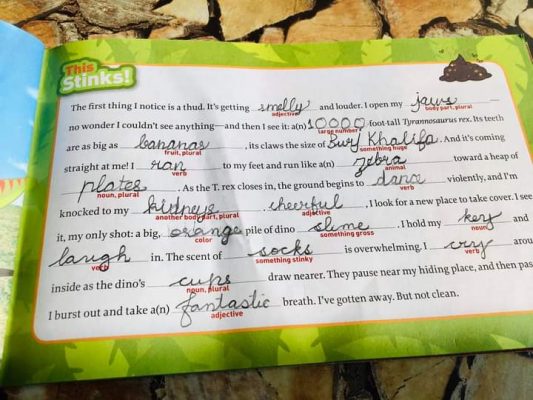 This
Stinks!
The first thing I notice is a thud. It's getting smelly and louder. I open my jaws —
adjective body part, plural
no wonder I couldn't see anything—and then I see it: a(n) 10000 foot-tall Tyrannosaurus rex. Its teeth
large number
are as big as bananas, its claws the size of Burj Khalifa. And it's coming
fruit, plural something huge
straight at me! I ran to my feet and run like a(n) zebra toward a heap of
verb animal
plates. As the T. rex closes in, the ground begins to dance violently, and I'm
noun, plural verb
knocked to my kidneys. cheerful, I look for a new place to take cover. I see
another body part, plural adjective
it, my only shot: a big, orange pile of dino slime. I hold my key and
color something gross noun
laugh in. The scent of socks is overwhelming. I cry
verb something stinky verb
inside as the dino's cups draw nearer. They pause near my hiding place, and then
noun, plural
I burst out and take a(n) fantastic breath. I've gotten away. But not clean.
adjective